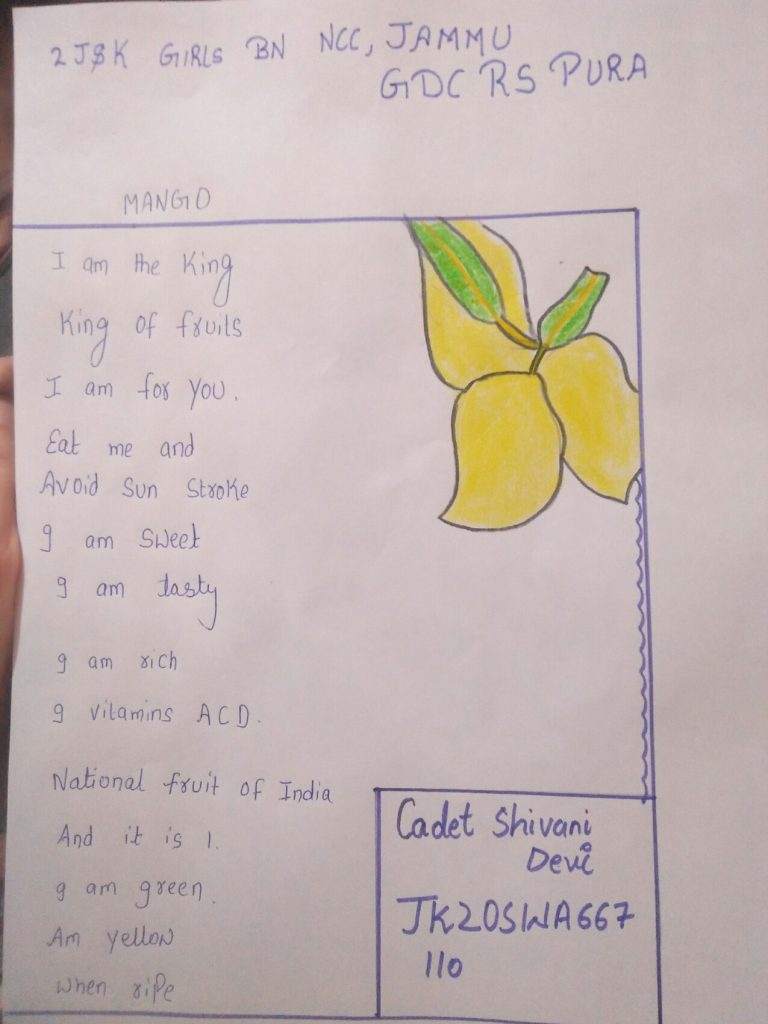 2 J&K GIRLS BN NCC, JAMMU
GDC RS PURA
MANGO
I am the King
King of fruits
I am for you.
Eat me and
Avoid Sun Stroke
I am Sweet
I am tasty
I am rich
I vitamins A C D.
National fruit of India
And it is I.
I am green.
Am yellow
When ripe
Cadet Shivani
Devi
JK20SWA667
110